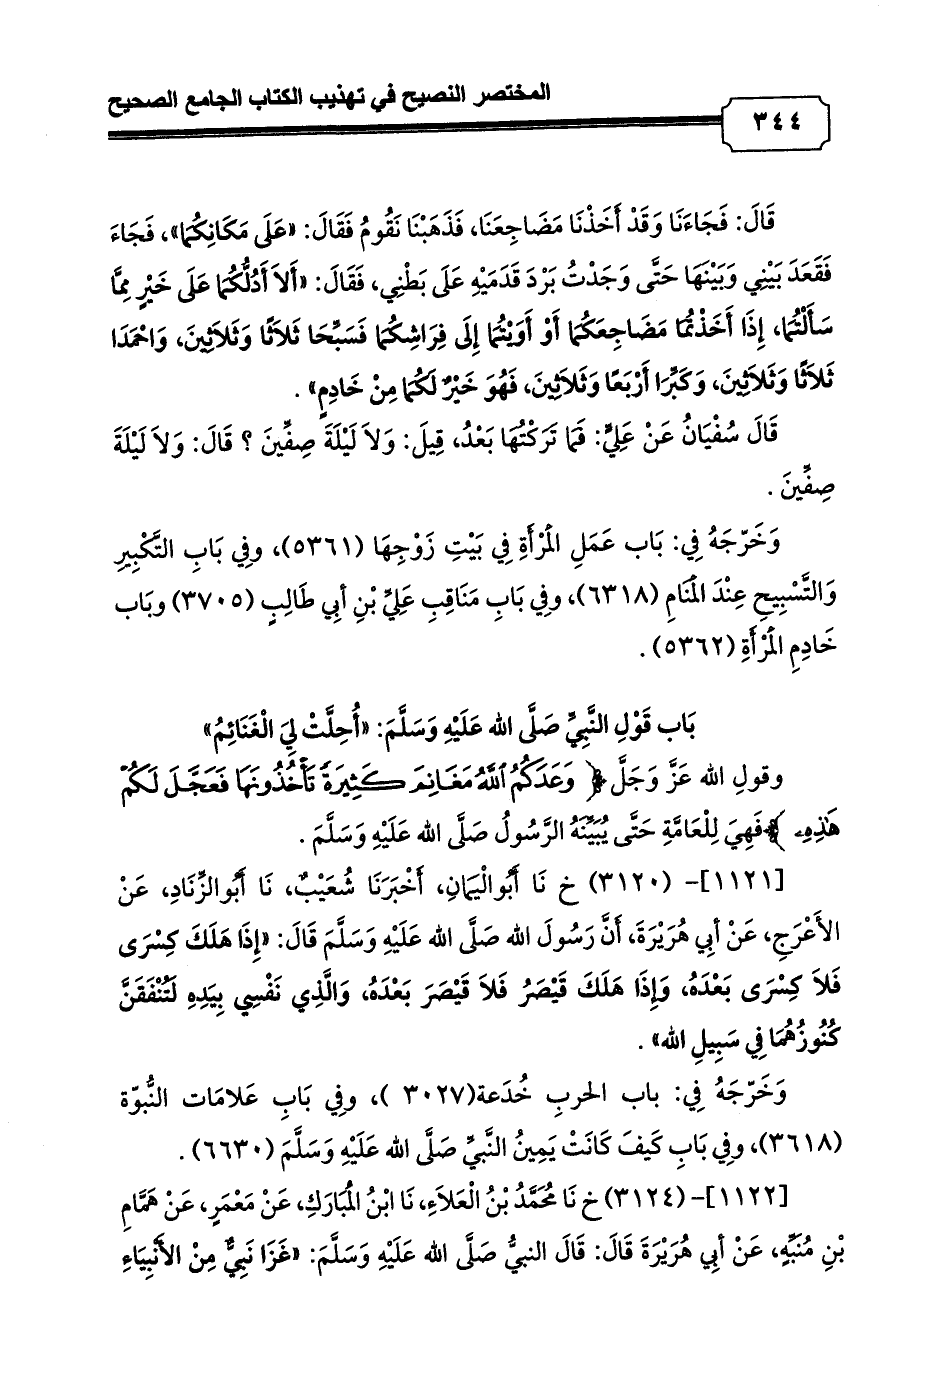 المختصر النصيح في تهذيب الكتاب الجامع الصحيح
٣٤٤
قَالَ: فَجَاءَنَا وَقَدْ أَخَذْنَا مَضَاجِعَنَا، فَذَهَبْنَا نَقُومُ فَقَالَ: «عَلَى مَكَانِكُمَا»، فَجَاءَ
فَقَعَدَ بَيْنِي وَبَيْنَهَا حَتَّى وَجَدْتُ بَرْدَ قَدَمَيْهِ عَلَى بَطْنِي، فَقَالَ: «أَلاَ أَدُلُّكُمَا عَلَى خَيْرٍ مِمَّا
سَأَلْتُمَا، إِذَا أَخَذْتُمَا مَضَاجِعَكُمَا أَوْ أَوَيْتُمَا إِلَى فِرَاشِكُمَا فَسَبِّحَا ثَلاَثًا وَثَلاَثِينَ، وَاحْمَدَا
ثَلاَثًا وَثَلاَثِينَ، وَكَبِّرَا أَرْبَعًا وَثَلاَثِينَ، فَهُوَ خَيْرٌ لَكُمَا مِنْ خَادِمٍ» .
قَالَ سُفْيَانُ عَنْ عَلِيٍّ: فَمَا تَرَكْتُهَا بَعْدُ، قِيلَ: وَلاَ لَيْلَةَ صِفِّينَ ؟ قَالَ: وَلاَ لَيْلَةَ
صِفِّينَ .
وَخَرَّجَهُ فِي: بَاب عَمَلِ الْمَرْأَةِ فِي بَيْتِ زَوْجِهَا (٥٣٦١)، وفِي بَابِ التَّكْبِيرِ
وَالتَّسْبِيحِ عِنْدَ الْمَنَامِ (٦٣١٨)، وفِي بَابِ مَنَاقِبِ عَلِيِّ بْنِ أبِي طَالِبٍ (٣٧٠٥) وبَاب
خَادِمِ الْمَرْأَةِ (٥٣٦٢) .
بَاب قَوْلِ النَّبِيِّ صَلَّى الله عَلَيْهِ وَسَلَّمَ: «أُحِلَّتْ لِيَ الْغَنَائِمُ»
وقولِ الله عَزَّ وَجَلَّ ﴿ وَعَدَكُمُ ٱللَّهُ مَغَانِمَ كَثِيرَةً تَأْخُذُونَهَا فَعَجَّلَ لَكُمْ
هَٰذِهِۦ ﴾ فَهِيَ لِلْعَامَّةِ حَتَّى يُبَيِّنَهُ الرَّسُولُ صَلَّى الله عَلَيْهِ وَسَلَّمَ .
[١١٢١]- (٣١٢٠) خ نَا أَبُوالْيَمَانِ، أَخْبَرَنَا شُعَيْبٌ، نَا أَبُوالزِّنَادِ، عَنْ
الأَعْرَجِ، عَنْ أبِي هُرَيْرَةَ، أَنَّ رَسُولَ الله صَلَّى الله عَلَيْهِ وَسَلَّمَ قَالَ: «إِذَا هَلَكَ كِسْرَى
فَلاَ كِسْرَى بَعْدَهُ، وَإِذَا هَلَكَ قَيْصَرُ فَلاَ قَيْصَرَ بَعْدَهُ، وَالَّذِي نَفْسِي بِيَدِهِ لَتُنْفَقَنَّ
كُنُوزُهُمَا فِي سَبِيلِ الله» .
وَخَرَّجَهُ فِي: باب الحربِ خُدَعة(٣٠٢٧ )، وفِي بَابِ عَلامَات النُّبوّة
(٣٦١٨)، وفِي بَابِ كَيْفَ كَانَتْ يَمِينُ النَّبِيِّ صَلَّى الله عَلَيْهِ وَسَلَّمَ (٦٦٣٠) .
[١١٢٢]- (٣١٢٤) خ نَا مُحَمَّدُ بْنُ الْعَلاَءِ، نَا ابْنُ الْمُبَارَكِ، عَنْ مَعْمَرٍ، عَنْ هَمَّامِ
بْنِ مُنَبِّهٍ، عَنْ أبِي هُرَيْرَةَ قَالَ: قَالَ النبيُّ صَلَّى الله عَلَيْهِ وَسَلَّمَ: «غَزَا نَبِيٌّ مِنْ الأَنْبِيَاءِ